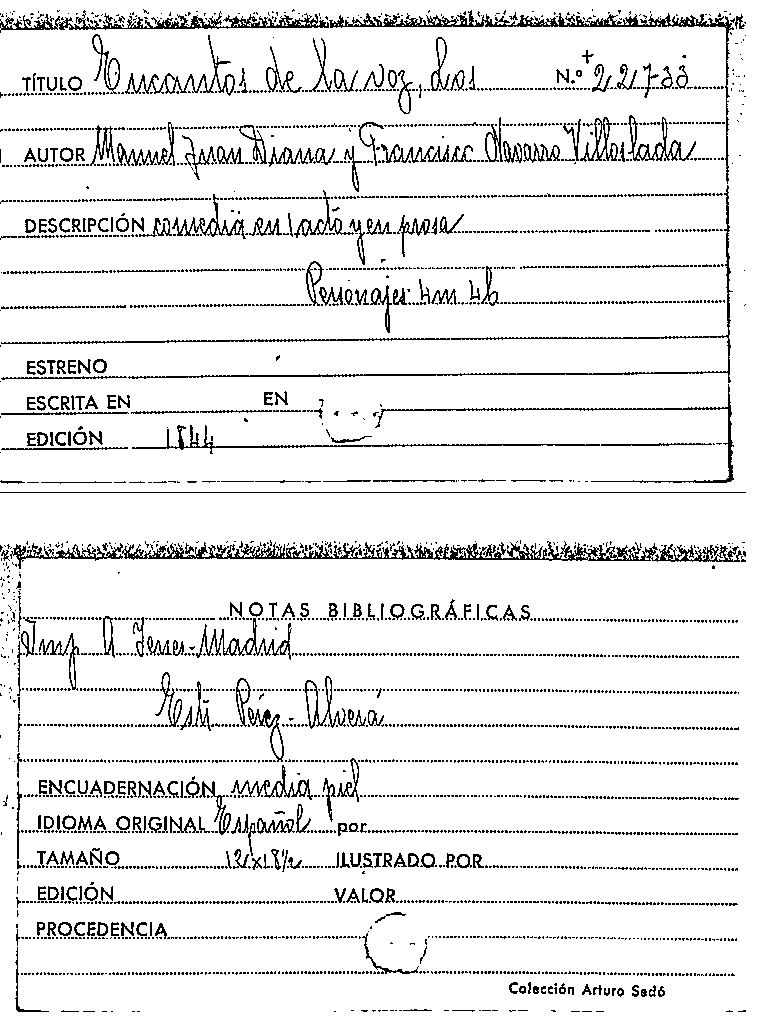 TÍTULO Encantos de la voz, Los N.º + 22733
AUTOR Manuel Juan Diana y Francisco Navarro Villoslada
DESCRIPCIÓN comedia en 1 acto y en prosa
Personajes 4m 4h
ESTRENO
ESCRITA EN EN
EDICIÓN 1844
NOTAS BIBLIOGRÁFICAS
Imp A Yenes-Madrid
Esti Pérez-Alverá
ENCUADERNACIÓN media piel
IDIOMA ORIGINAL Español por
TAMAÑO ILUSTRADO POR
EDICIÓN VALOR
PROCEDENCIA
Colección Arturo Sedó